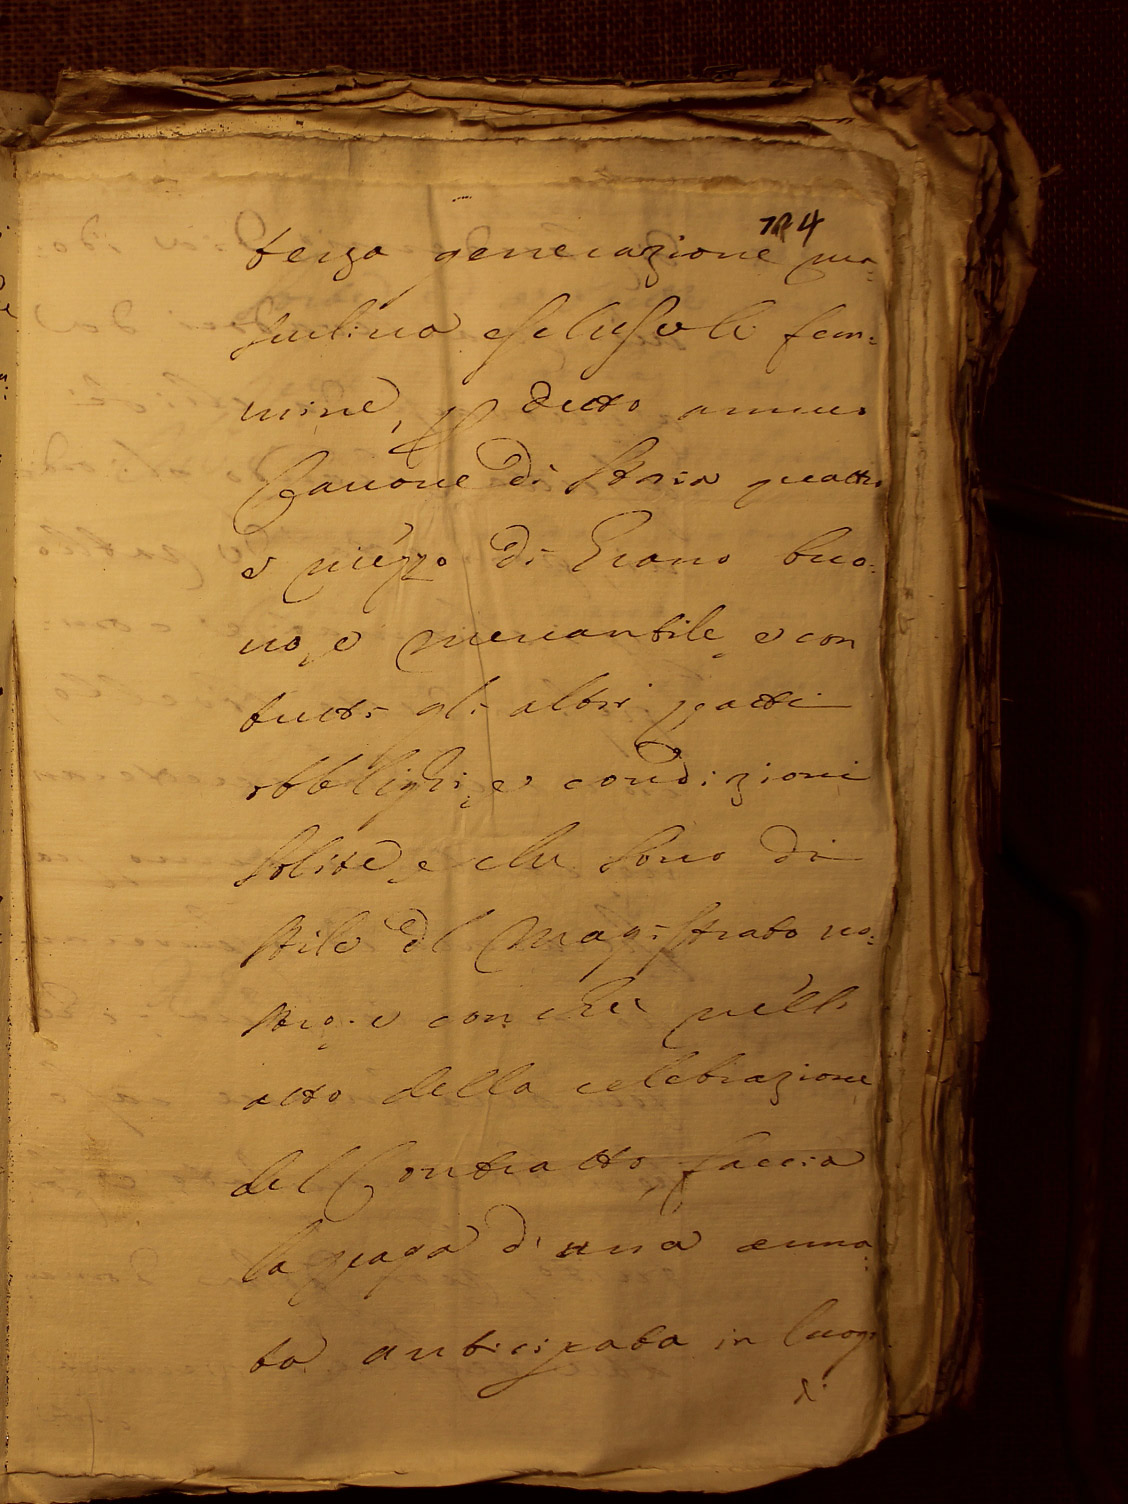 terza generazione ma-
sculina esclusole fem-
mine, p detto annuo
Canone di Staria quattro
e mezzo di Grano buo-
no, e mercantile, e con
tutti gli altri patti
obblighi, e condizioni
solite, e che sono di
stile del Magistrato no-
stro, e con che nell
atto della celebrazione
del Contratto, faccia
la paga d'una anna-
ta anticipata in luogo
di